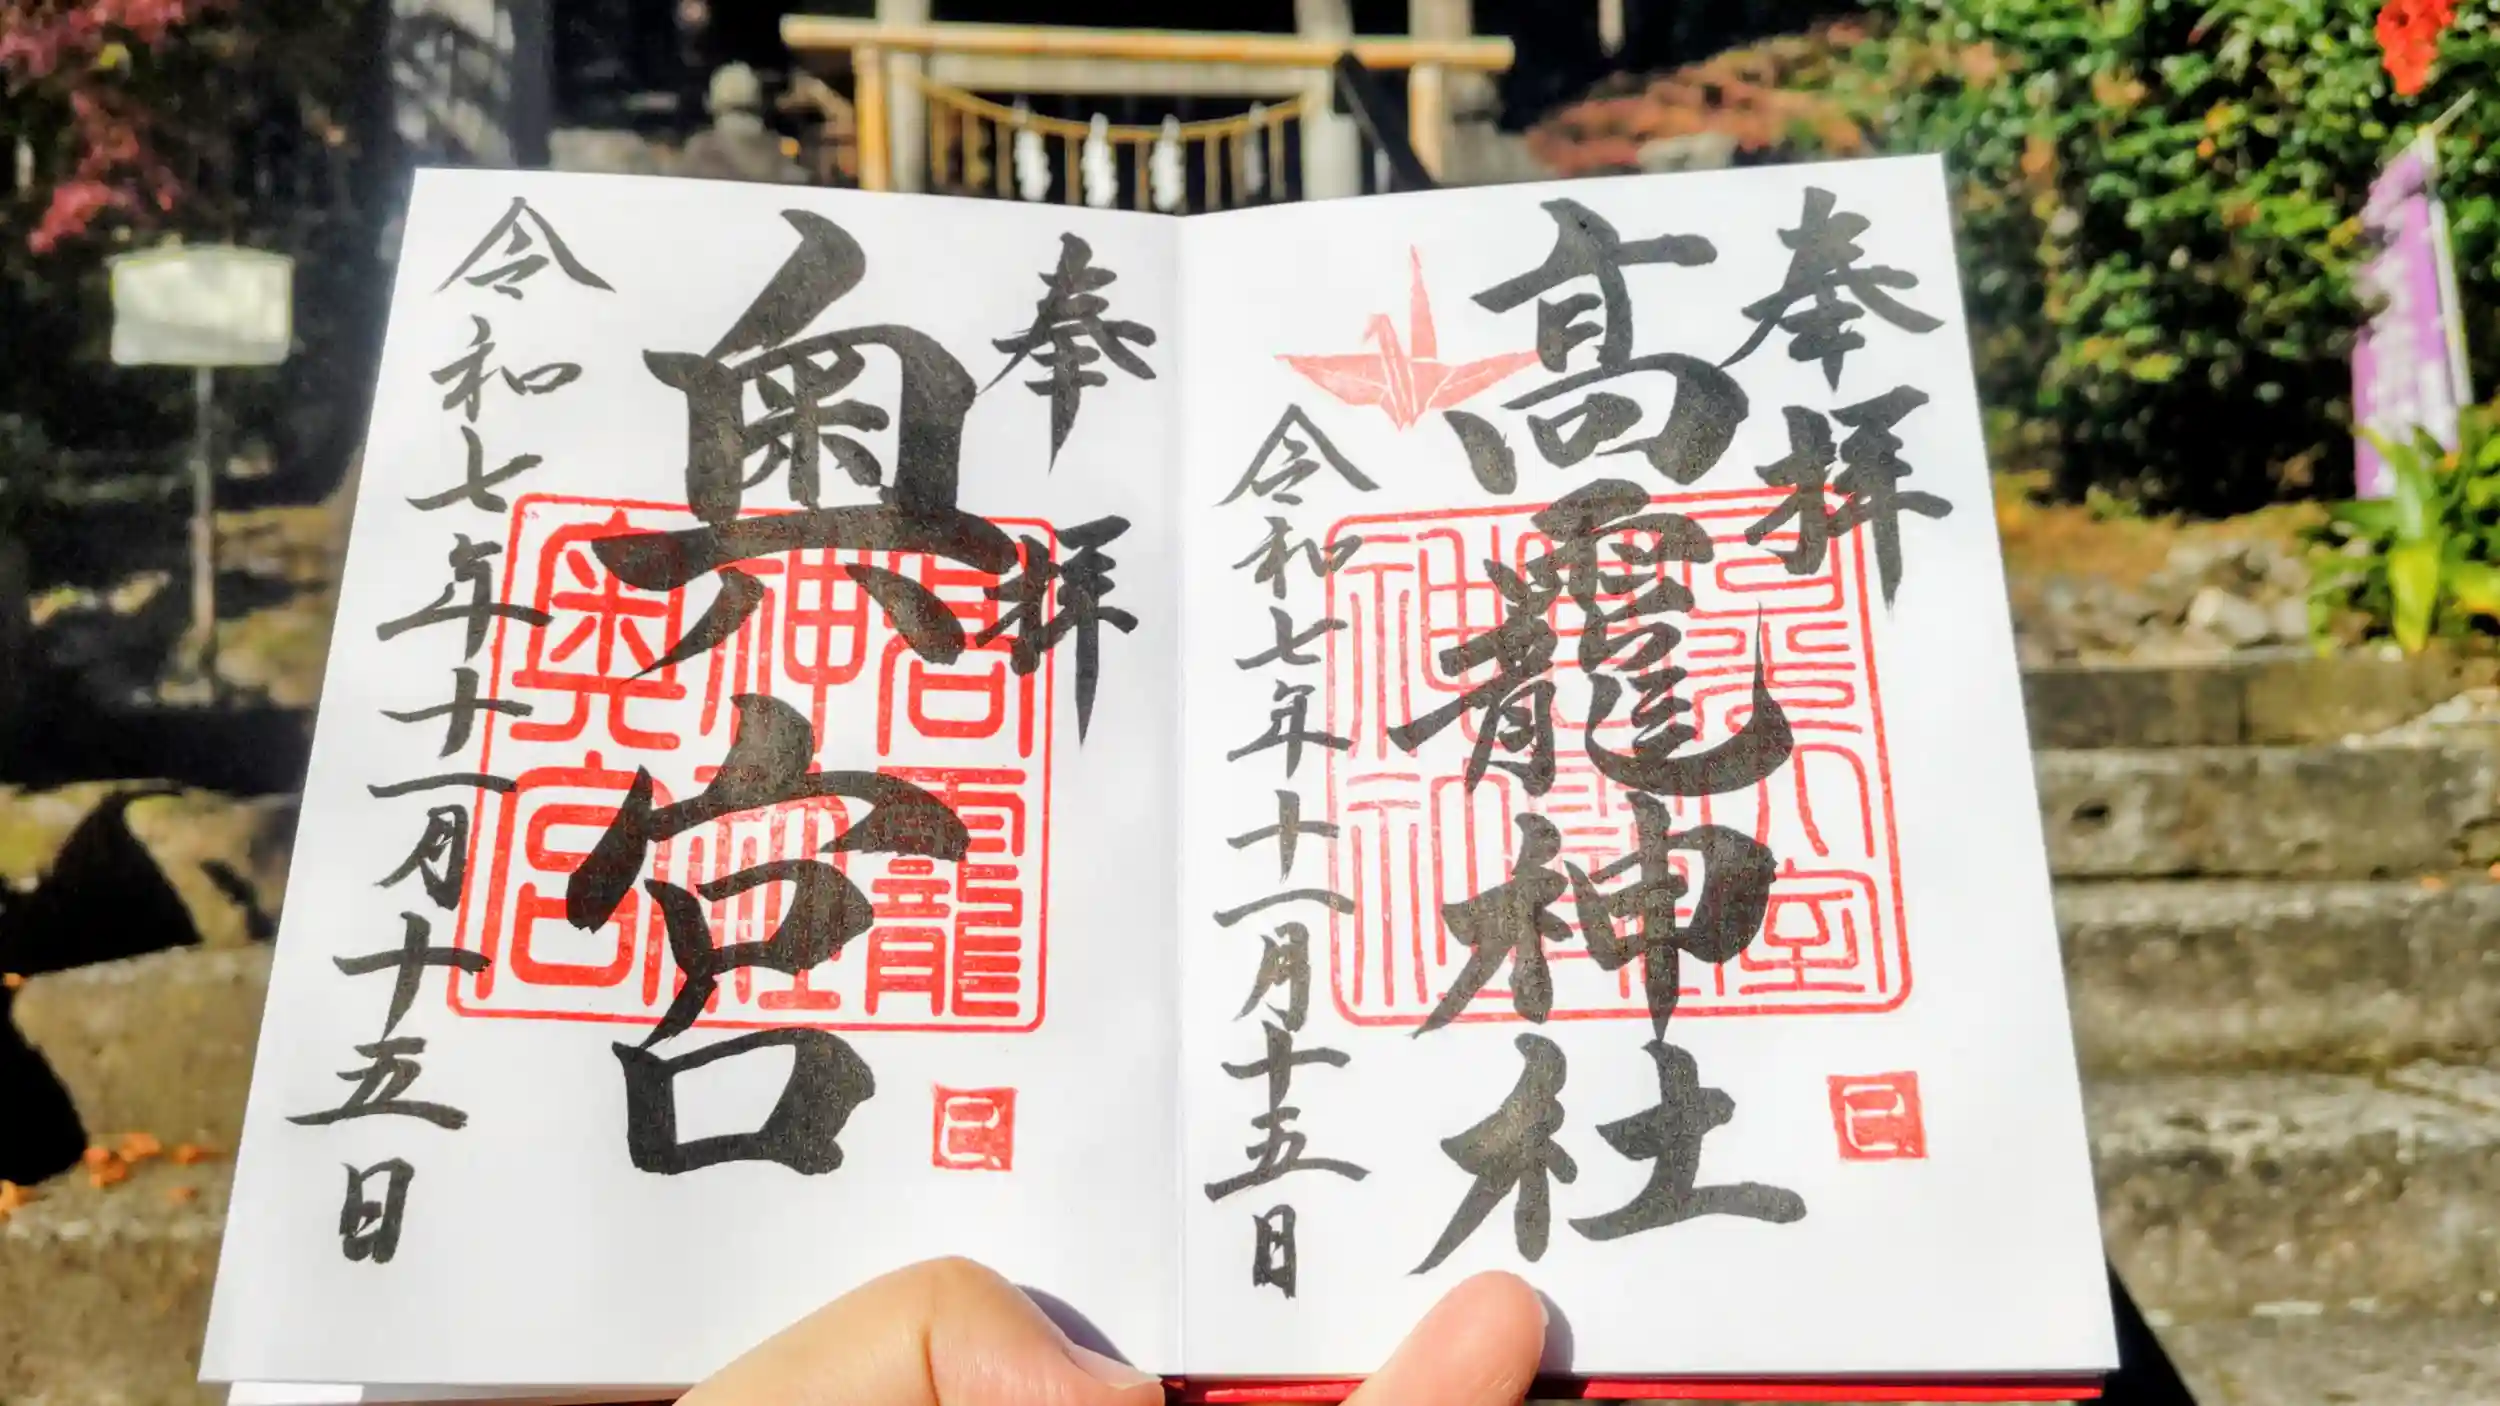 奉拝
高龗神社
日光大室
高龗
神社
巳
令和七年十一月十五日
奉拝
奥宮
高龗
神社
奥宮
巳
令和七年十一月十五日